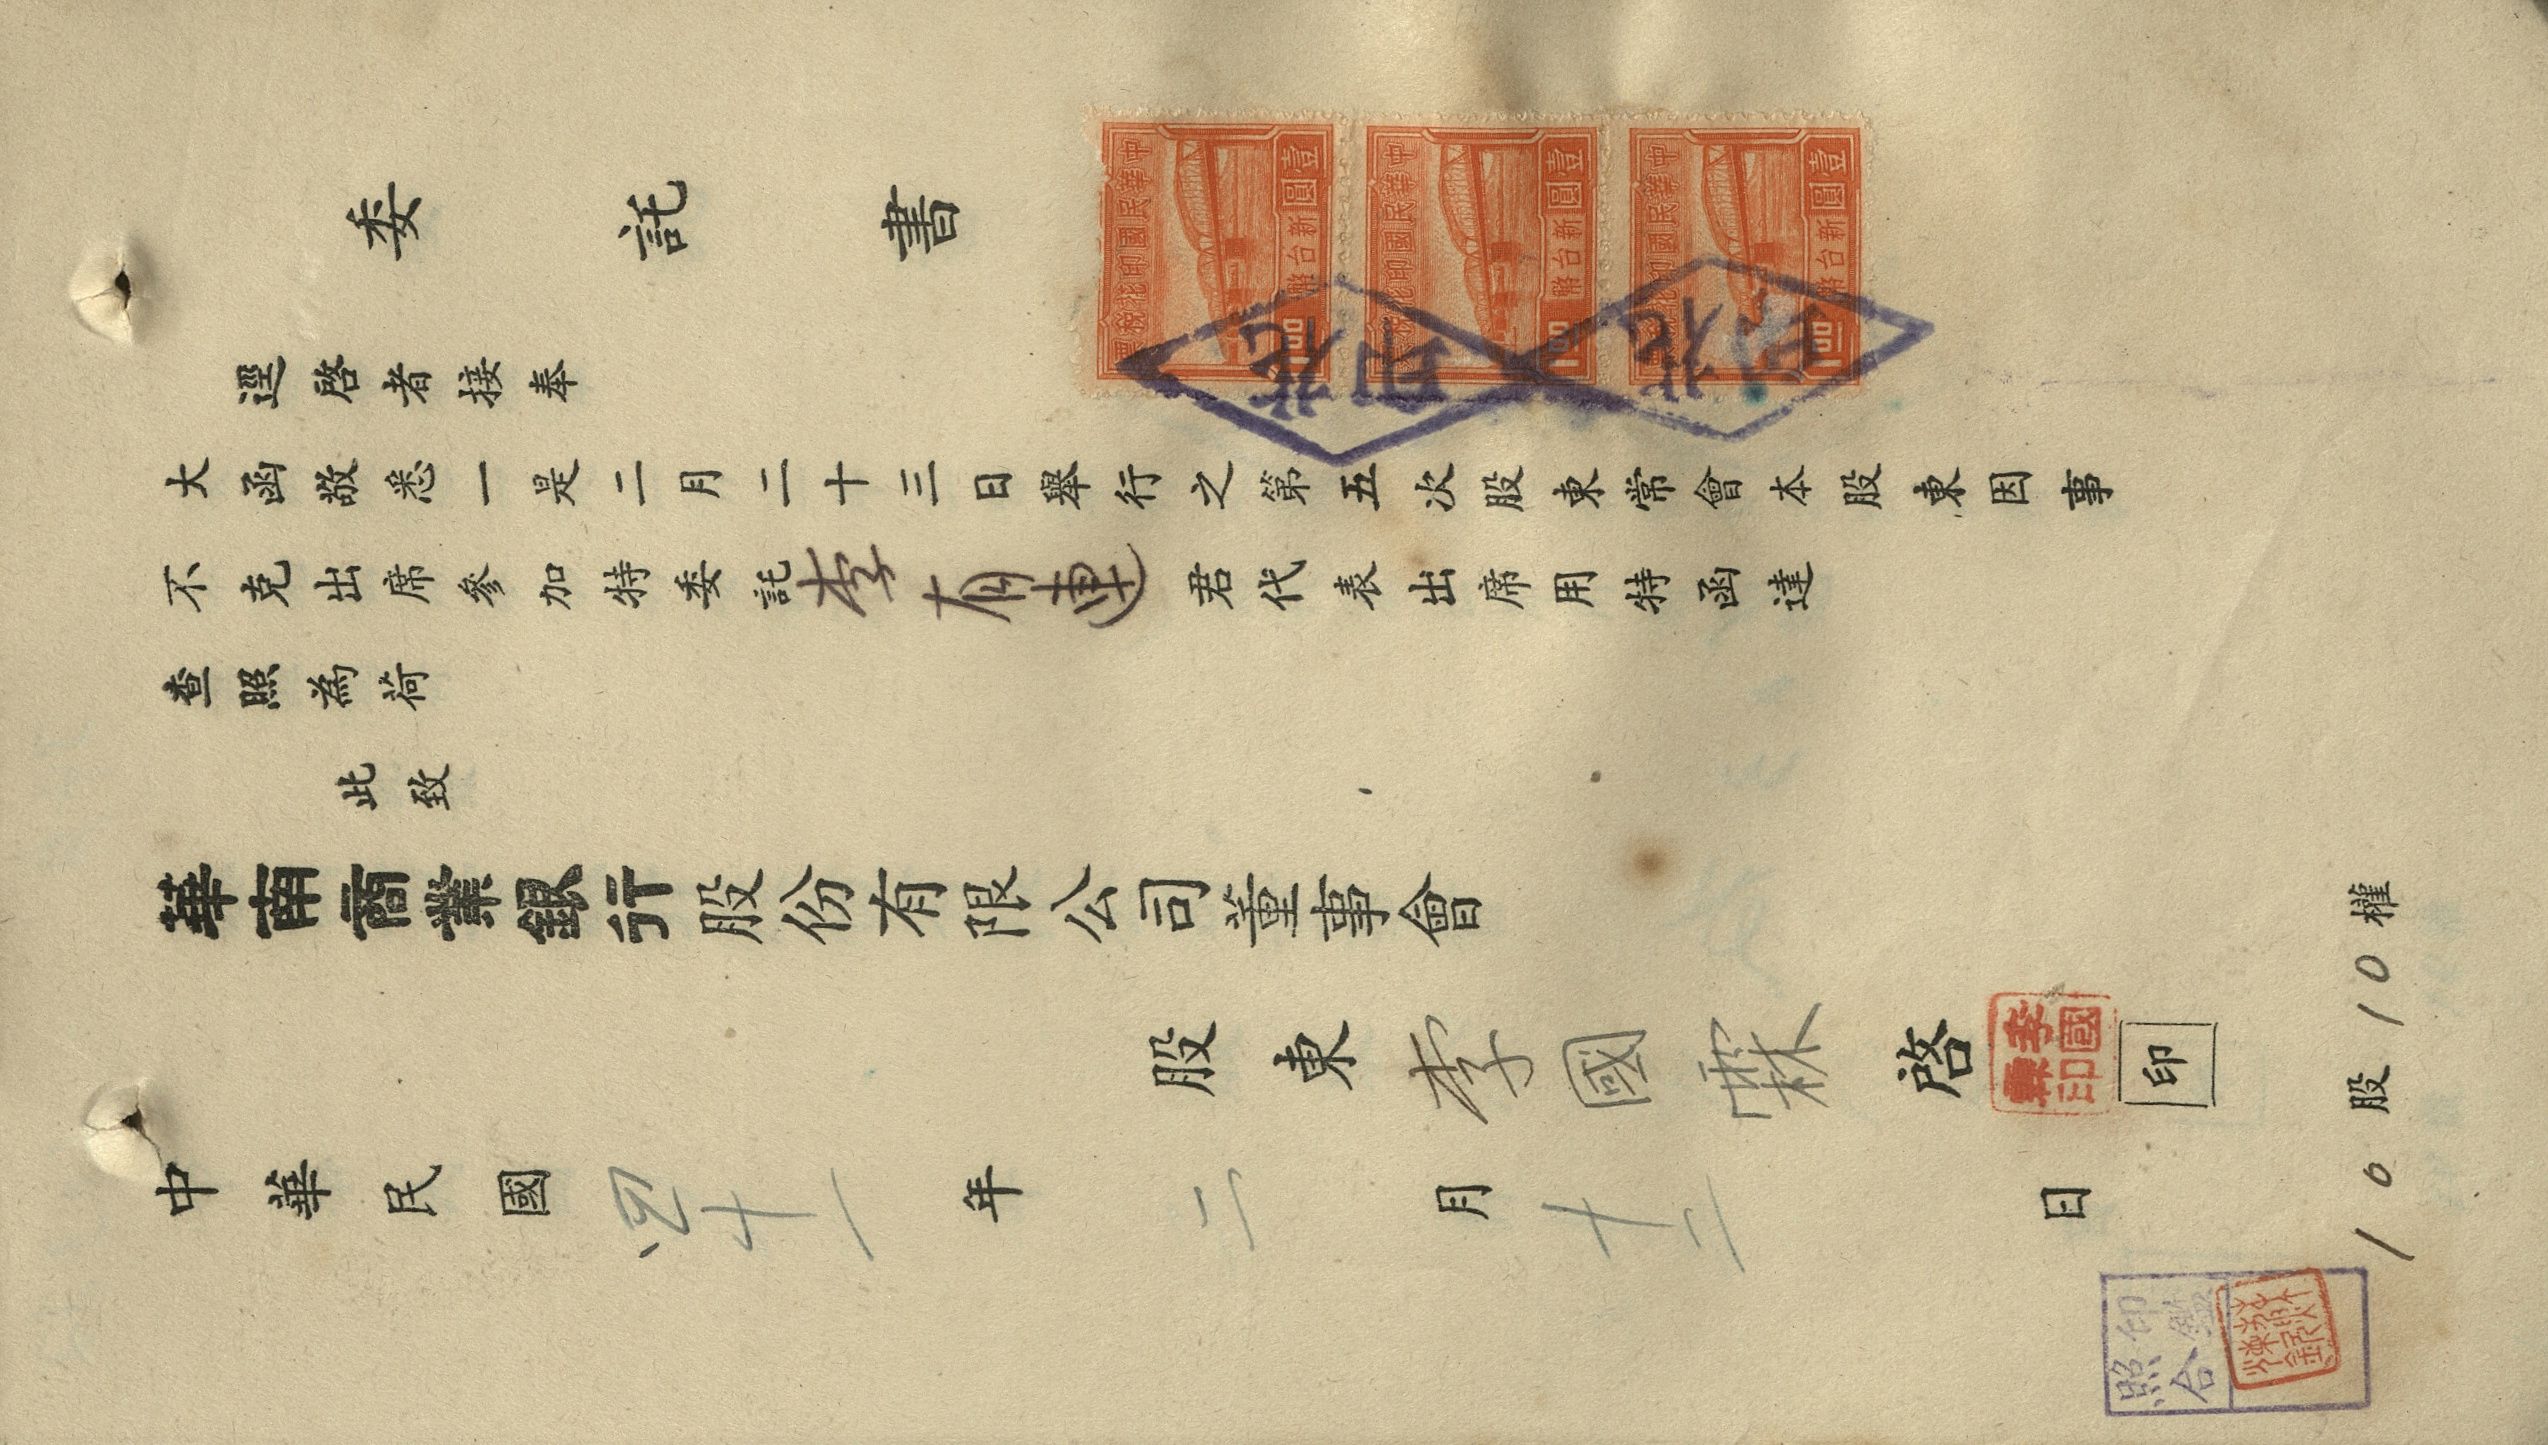 委託書
逕啓者接奉
大函敬悉一是二月二十三日舉行之第五次股東常會本股東因事
不克出席參加特委託李有連君代表出席用特函達
查照為荷
此致
華南商業銀行股份有限公司董事會
股東李國霖啓
印
李國霖印
中華民國四十一年二月十二日
10股10權
印鑑
照合
中華民國印花稅票
新台幣
壹圓
1.00
中華民國印花稅票
新台幣
壹圓
1.00
中華民國印花稅票
新台幣
壹圓
1.00
印花
印花